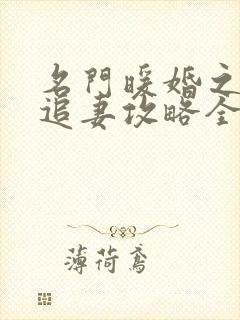 名門暖婚之
追妻攻略全
薄荷鸢